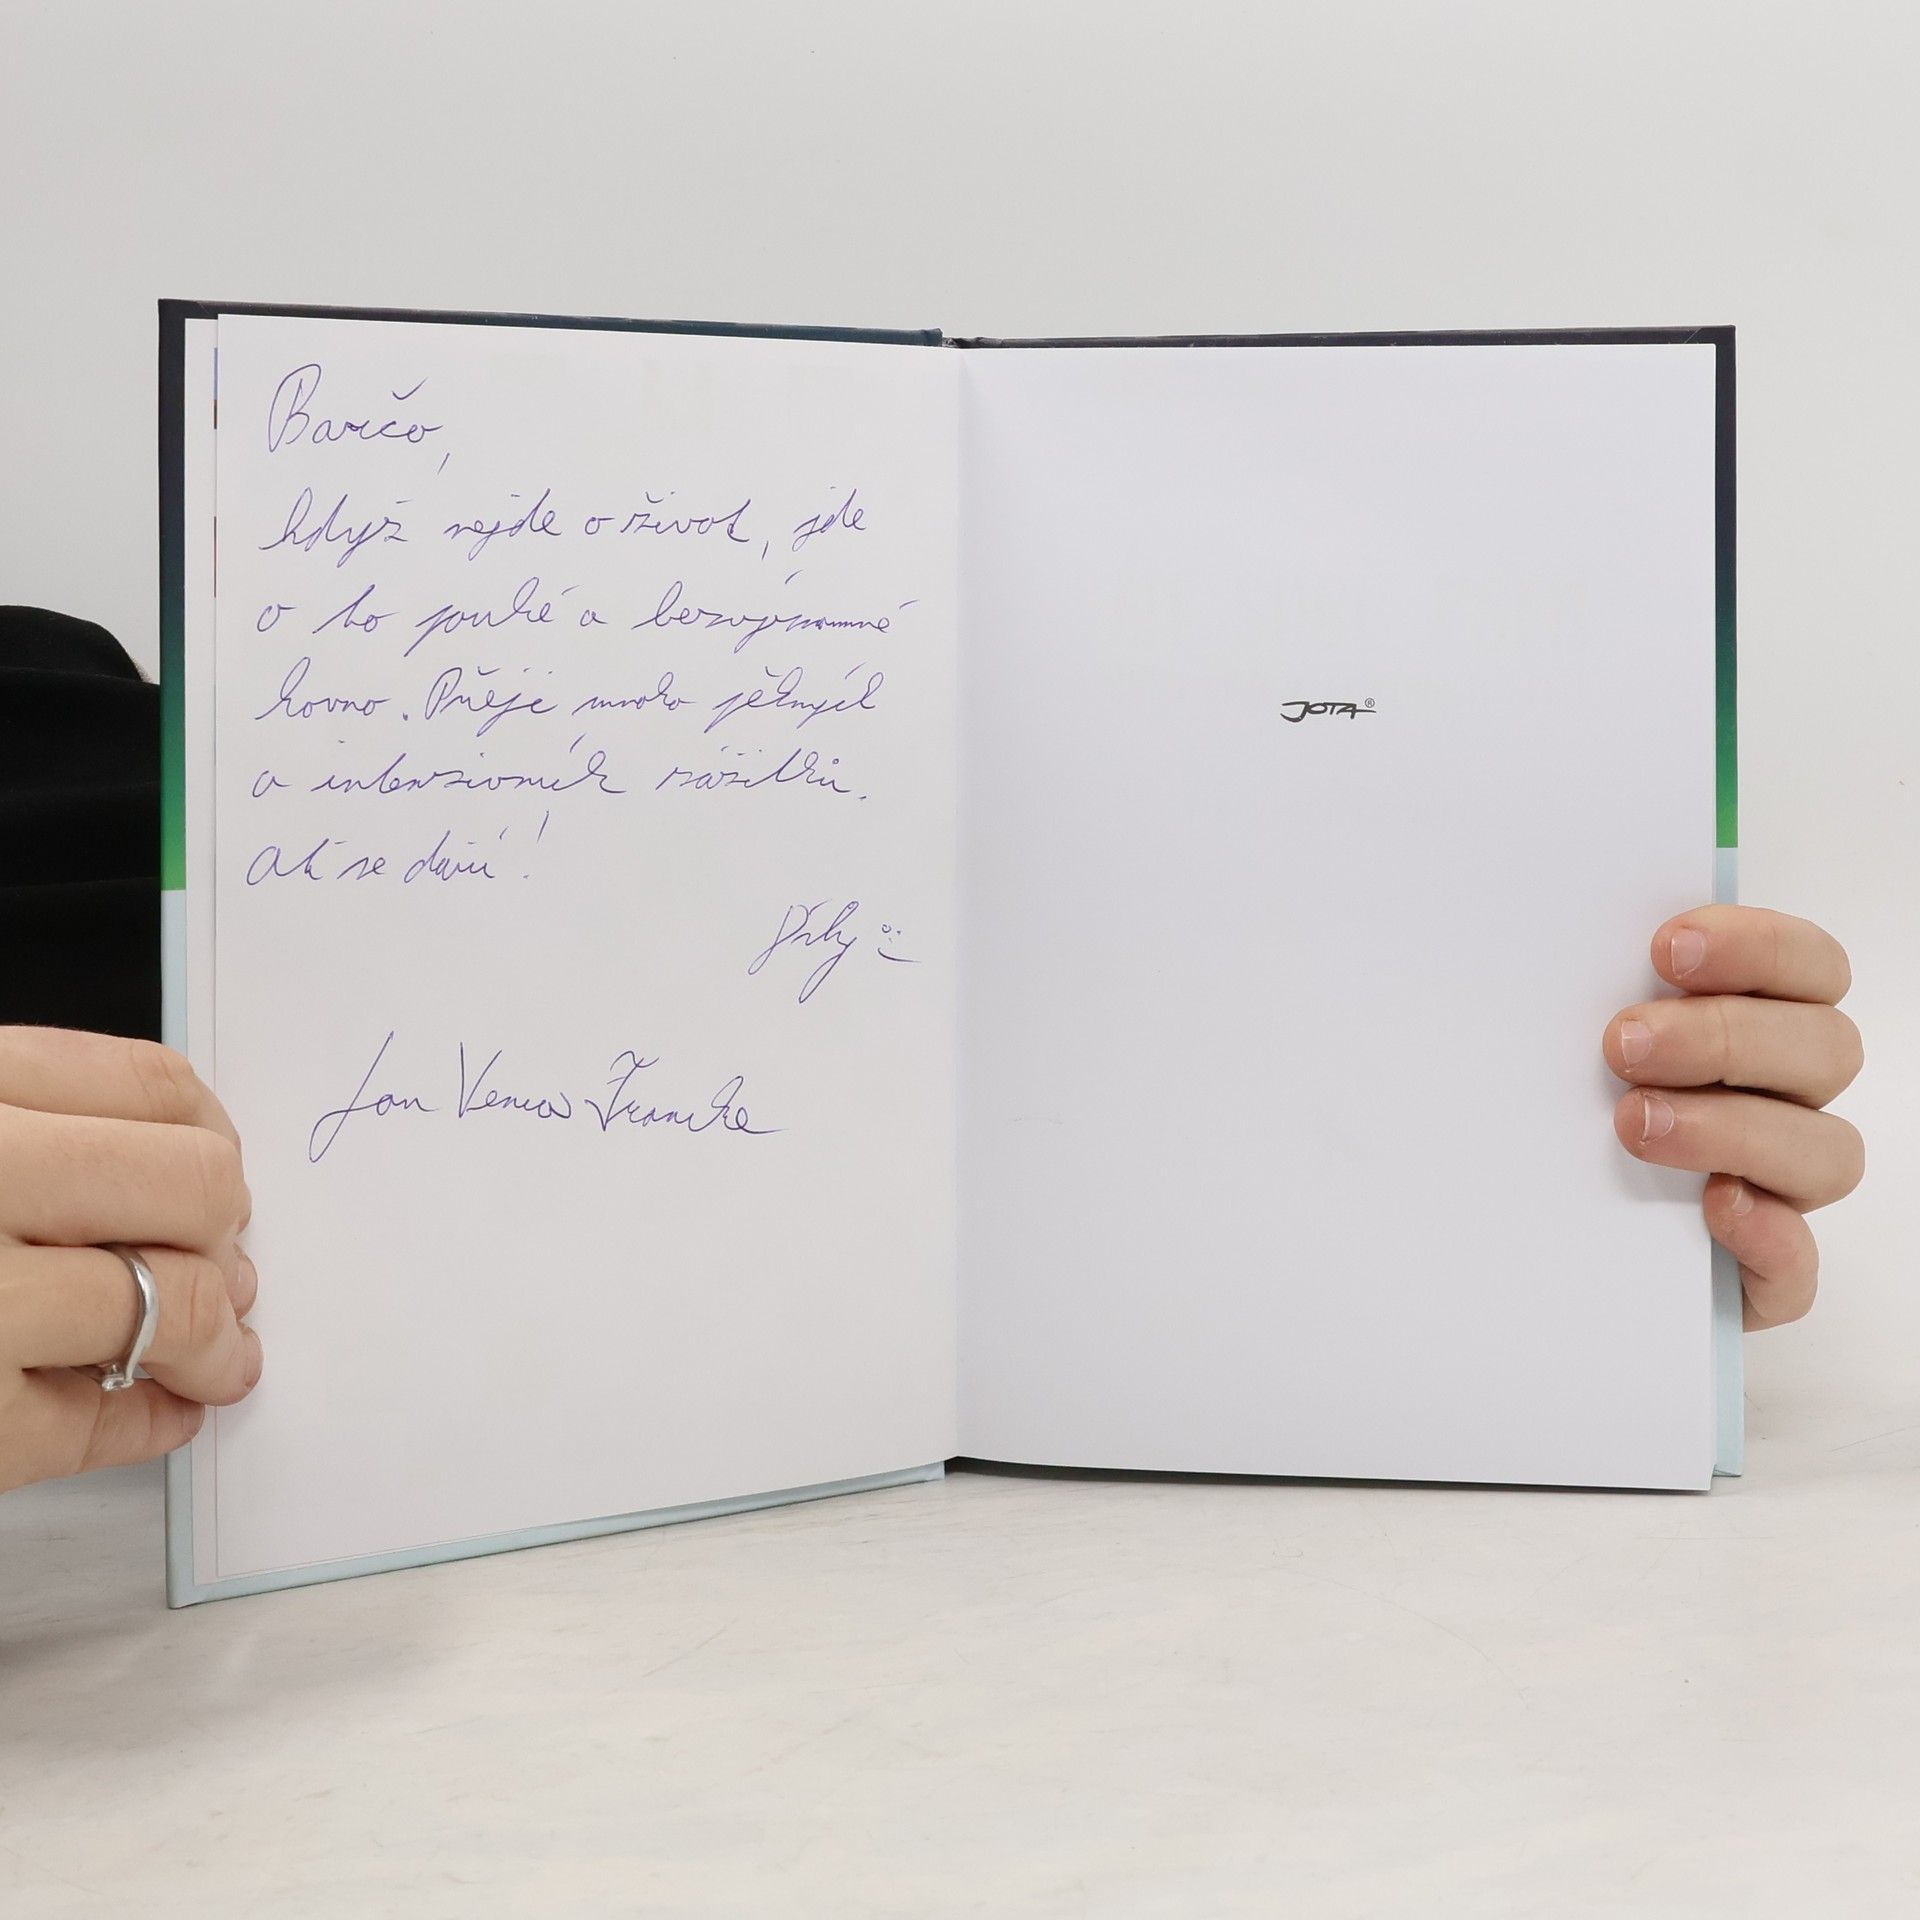 Barčo,
když nejde o život, jde
o to pouhé a bezvýznamné
hovno. Přeji mnoho pěkných
a intenzivních zážitků.
Ať se daří!
Díky
Jan Venca Francke
JOTA®